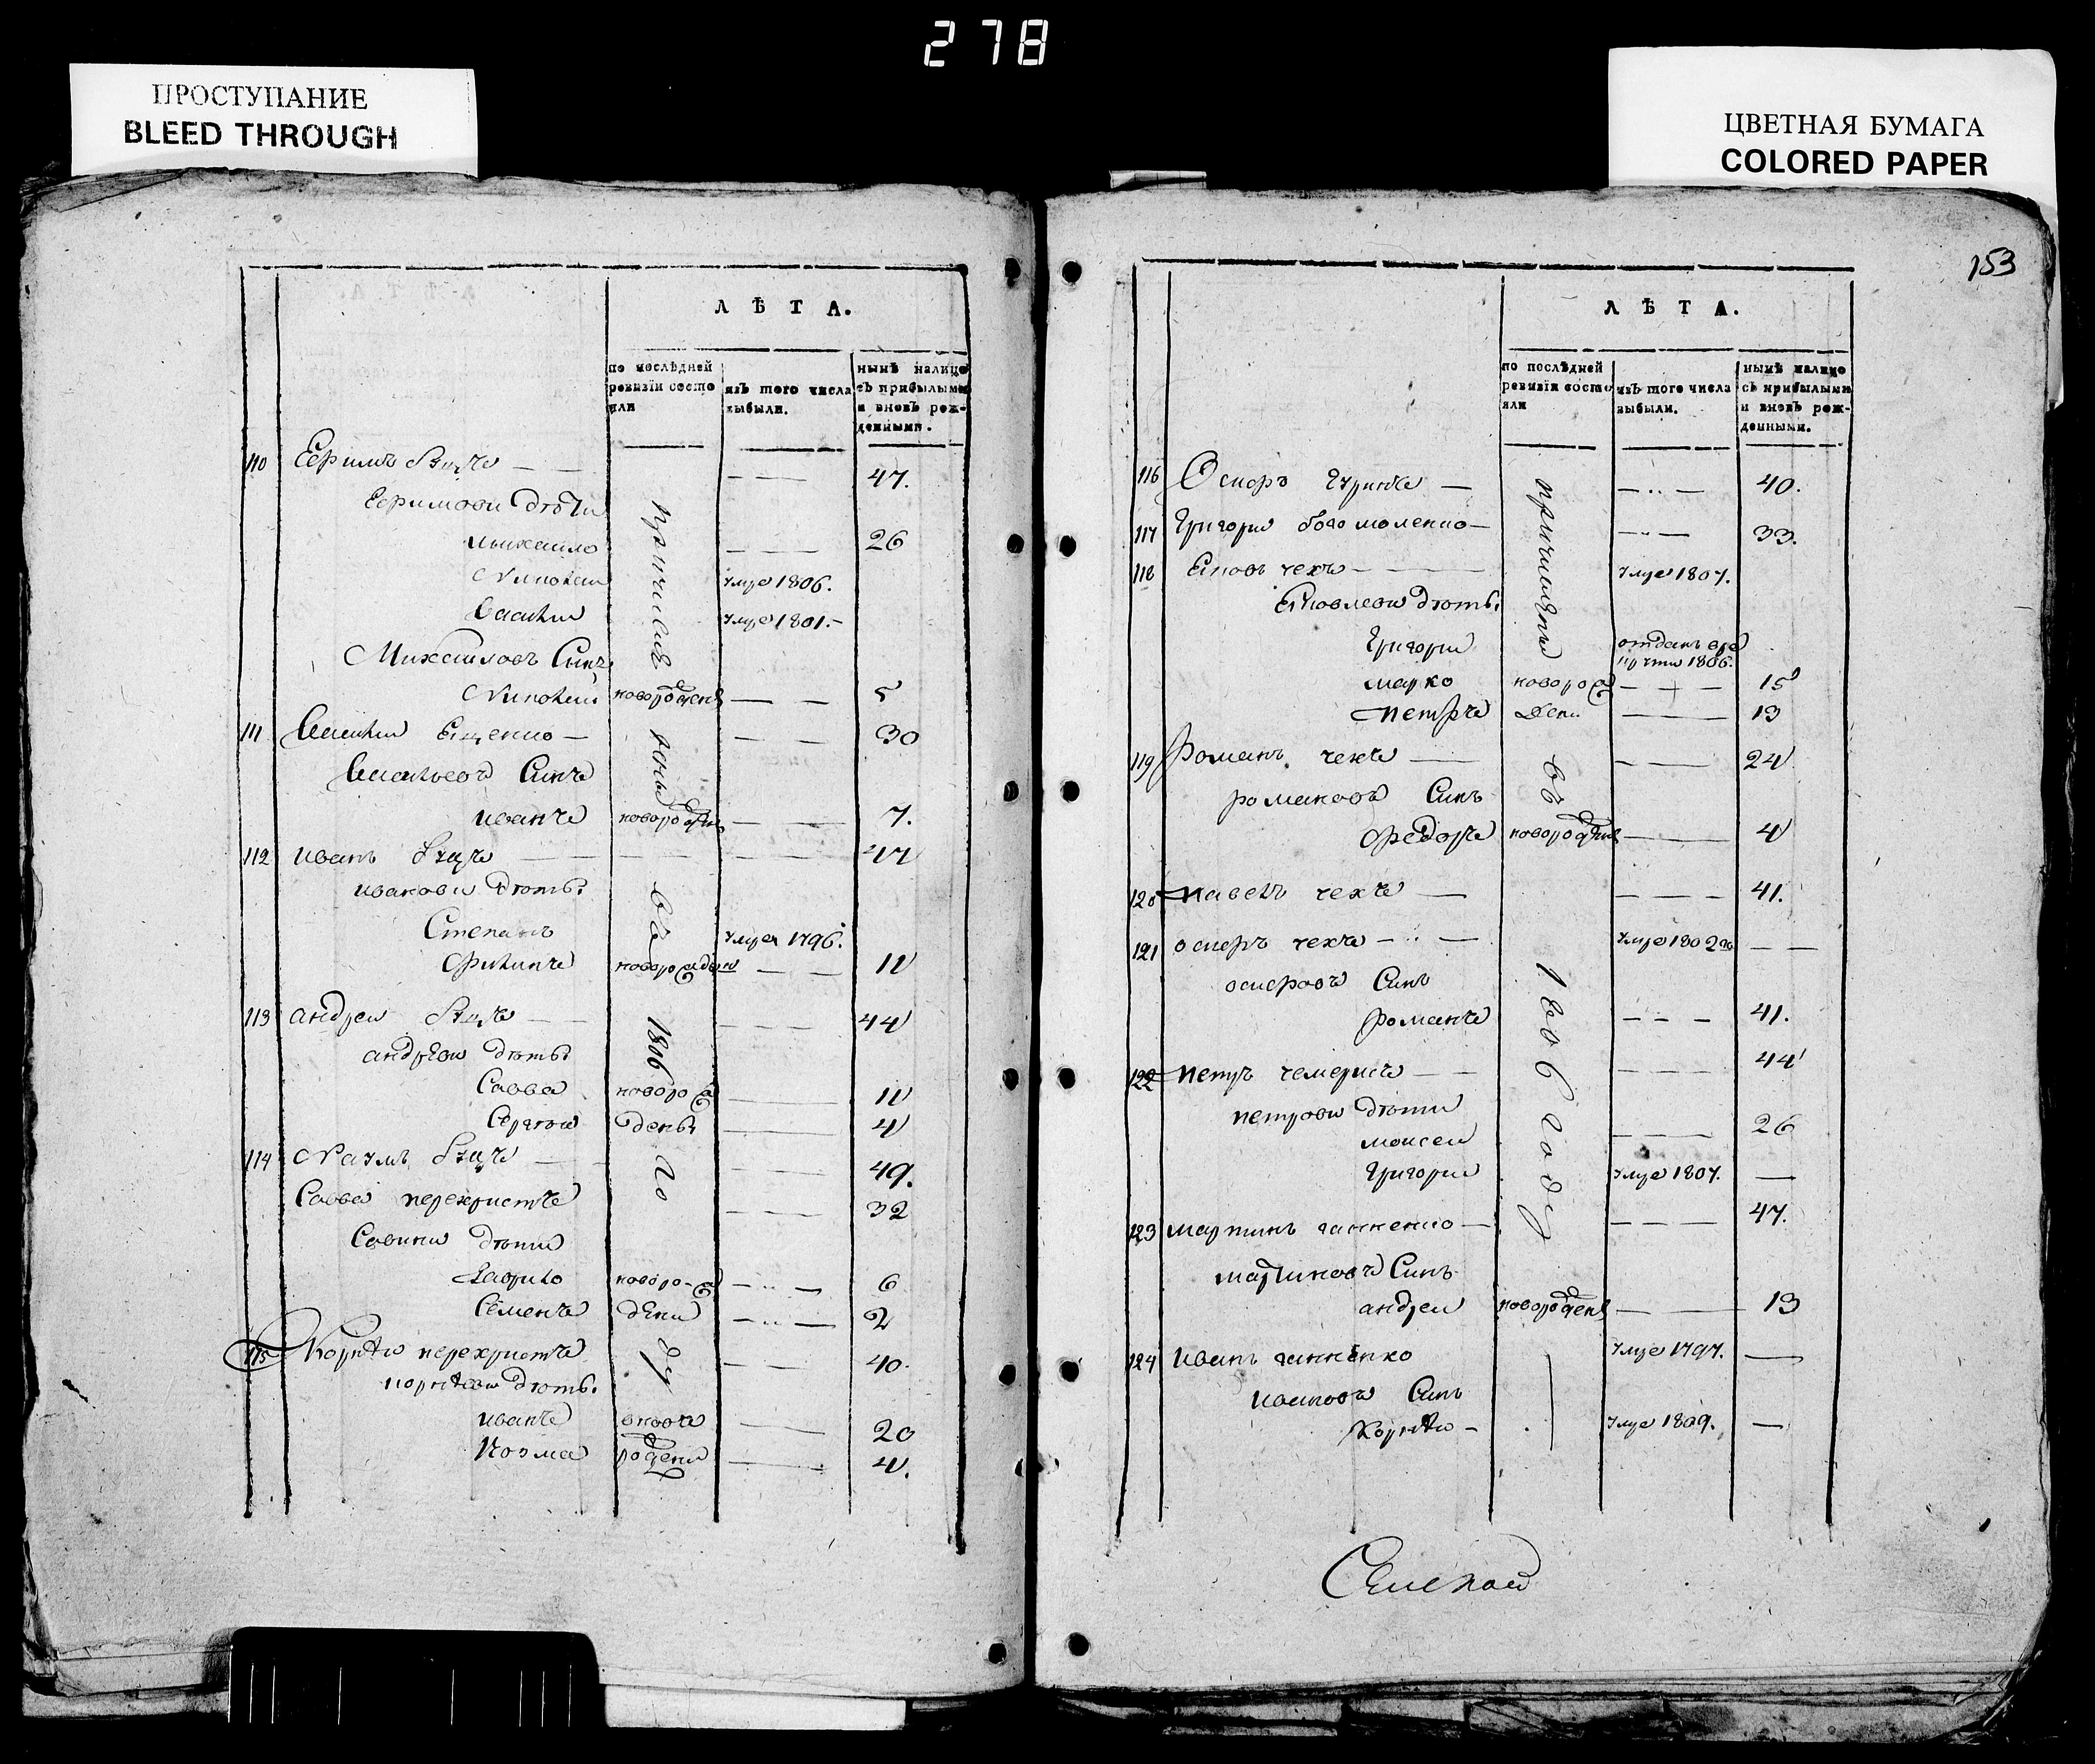 278
ПРОСТУПАНИЕ
BLEED THROUGH
ЦВЕТНАЯ БУМАГА
COLORED PAPER
153
ЛѢТА.
по послѣдней ревизіи состояли
изъ того числа выбыли.
нынѣ налицо съ прибылыми и вновь рожденными.
110 Ефимъ — — 47.
Ефимови дѣти
михайло — — 26
Никойай умре 1806.
Василий умре 1801.–
Михайловъ Синъ
Никойай новорожденъ — — 5
111 Василий — — — 30
Васильевъ Синъ
иванъ новорожденъ — — 7.
112 иванъ — — — 47
иванови дѣти
Степанъ умре 1796.
Филипъ новорожденъ — — 11
113 андреи — — — 44
андрѣви дѣти
Савва новорож — 11
Сергѣи дены — 4
114 Наумъ — — 49.
Савва перехристъ — — 32
Савини дѣти
Гаврило новорож — 6
Семенъ дени — 2
115 Корнѣи перехристъ — — 40.
корнѣеви дѣти
иванъ вновъ — 20
Козма рождени — 4.
причислены въ 1806 году
ЛѢТА.
по послѣдней ревизіи состояли
изъ того числа выбыли.
нынѣ налицо съ прибылыми и вновь рожденными.
116 Осифъ — — — 40.
117 Григори богомоленко — — — 33.
118 Яковъ чехъ — умре 1807.
Яковлеви дѣти
Григори отданъ 1806.
марко новорож — + — 15
петръ дени — 13
119 Романъ чехъ — — — 24
романовъ Синъ
федоръ новорожденъ — 4
120 павелъ чехъ — — — — 41.
121 осифъ чехъ — умре 1802 — —
осифовъ Синъ
романъ — — — 41.
122 петръ чемерисъ — — — — 44
петрови дѣти
моисеи — — 26
Григори умре 1807. —
123 мартинъ ганненко — — — — 47.
мартиновъ Синъ
андреи новорожденъ — — 13
124 иванъ ганненко умре 1797. —
ивановъ Синъ
Корнѣи – умре 1809. —
причислены въ 1806 году